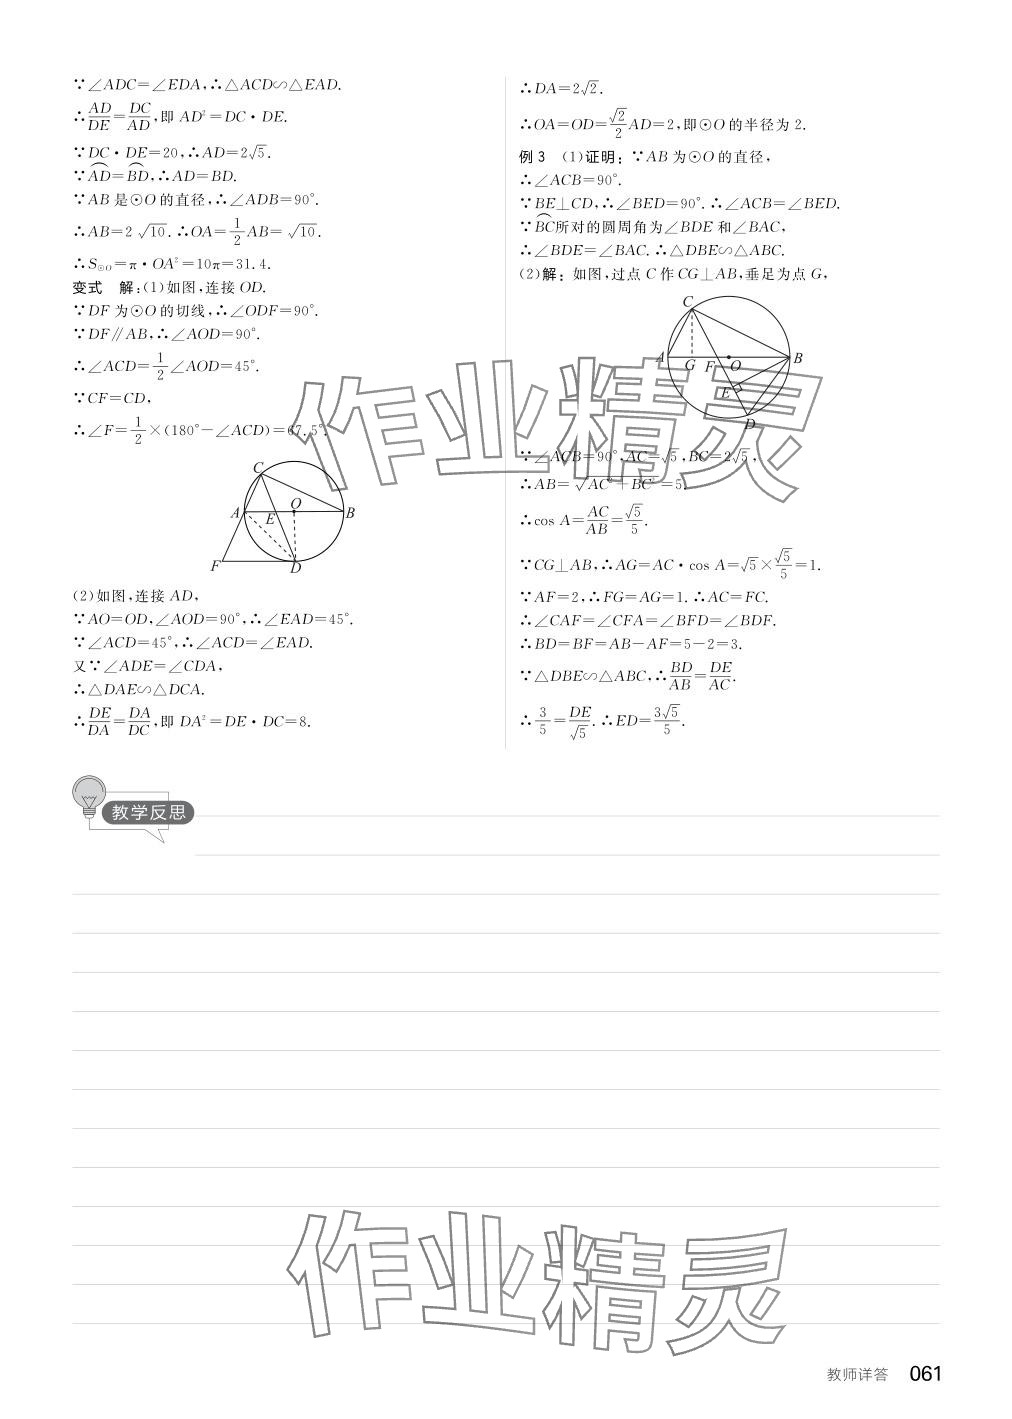 ∵∠ADC=∠EDA,∴△ACD∽△EAD.
∴AD/DE=DC/AD,即 AD²=DC·DE.
∵DC·DE=20,∴AD=2√5.
∵A͡D=B͡D,∴AD=BD.
∵AB 是⊙O 的直径,∴∠ADB=90°.
∴AB=2√10.∴OA=1/2AB=√10.
∴S⊙O=π·OA²=10π=31.4.
变式 解:(1)如图,连接 OD.
∵DF 为⊙O 的切线,∴∠ODF=90°.
∵DF∥AB,∴∠AOD=90°.
∴∠ACD=1/2∠AOD=45°.
∵CF=CD,
∴∠F=1/2×(180°-∠ACD)=67.5°.
C
A
E
O
B
F
D
(2)如图,连接 AD,
∵AO=OD,∠AOD=90°,∴∠EAD=45°.
∵∠ACD=45°,∴∠ACD=∠EAD.
又∵∠ADE=∠CDA,
∴△DAE∽△DCA.
∴DE/DA=DA/DC,即 DA²=DE·DC=8.
∴DA=2√2.
∴OA=OD=√2/2AD=2,即⊙O 的半径为 2.
例 3 (1)证明:∵AB 为⊙O 的直径,
∴∠ACB=90°.
∵BE⊥CD,∴∠BED=90°.∴∠ACB=∠BED.
∵B͡C所对的圆周角为∠BDE 和∠BAC,
∴∠BDE=∠BAC.∴△DBE∽△ABC.
(2)解:如图,过点 C 作 CG⊥AB,垂足为点 G,
C
A
G
F
O
B
E
D
∵∠ACB=90°,AC=√5,BC=2√5,
∴AB=√AC²+BC²=5.
∴cos A=AC/AB=√5/5.
∵CG⊥AB,∴AG=AC·cos A=√5×√5/5=1.
∵AF=2,∴FG=AG=1.∴AC=FC.
∴∠CAF=∠CFA=∠BFD=∠BDF.
∴BD=BF=AB-AF=5-2=3.
∵△DBE∽△ABC,∴BD/AB=DE/AC.
∴3/5=DE/√5.∴ED=3√5/5.
作业精灵
教学反思
作业精灵
教师详答 061